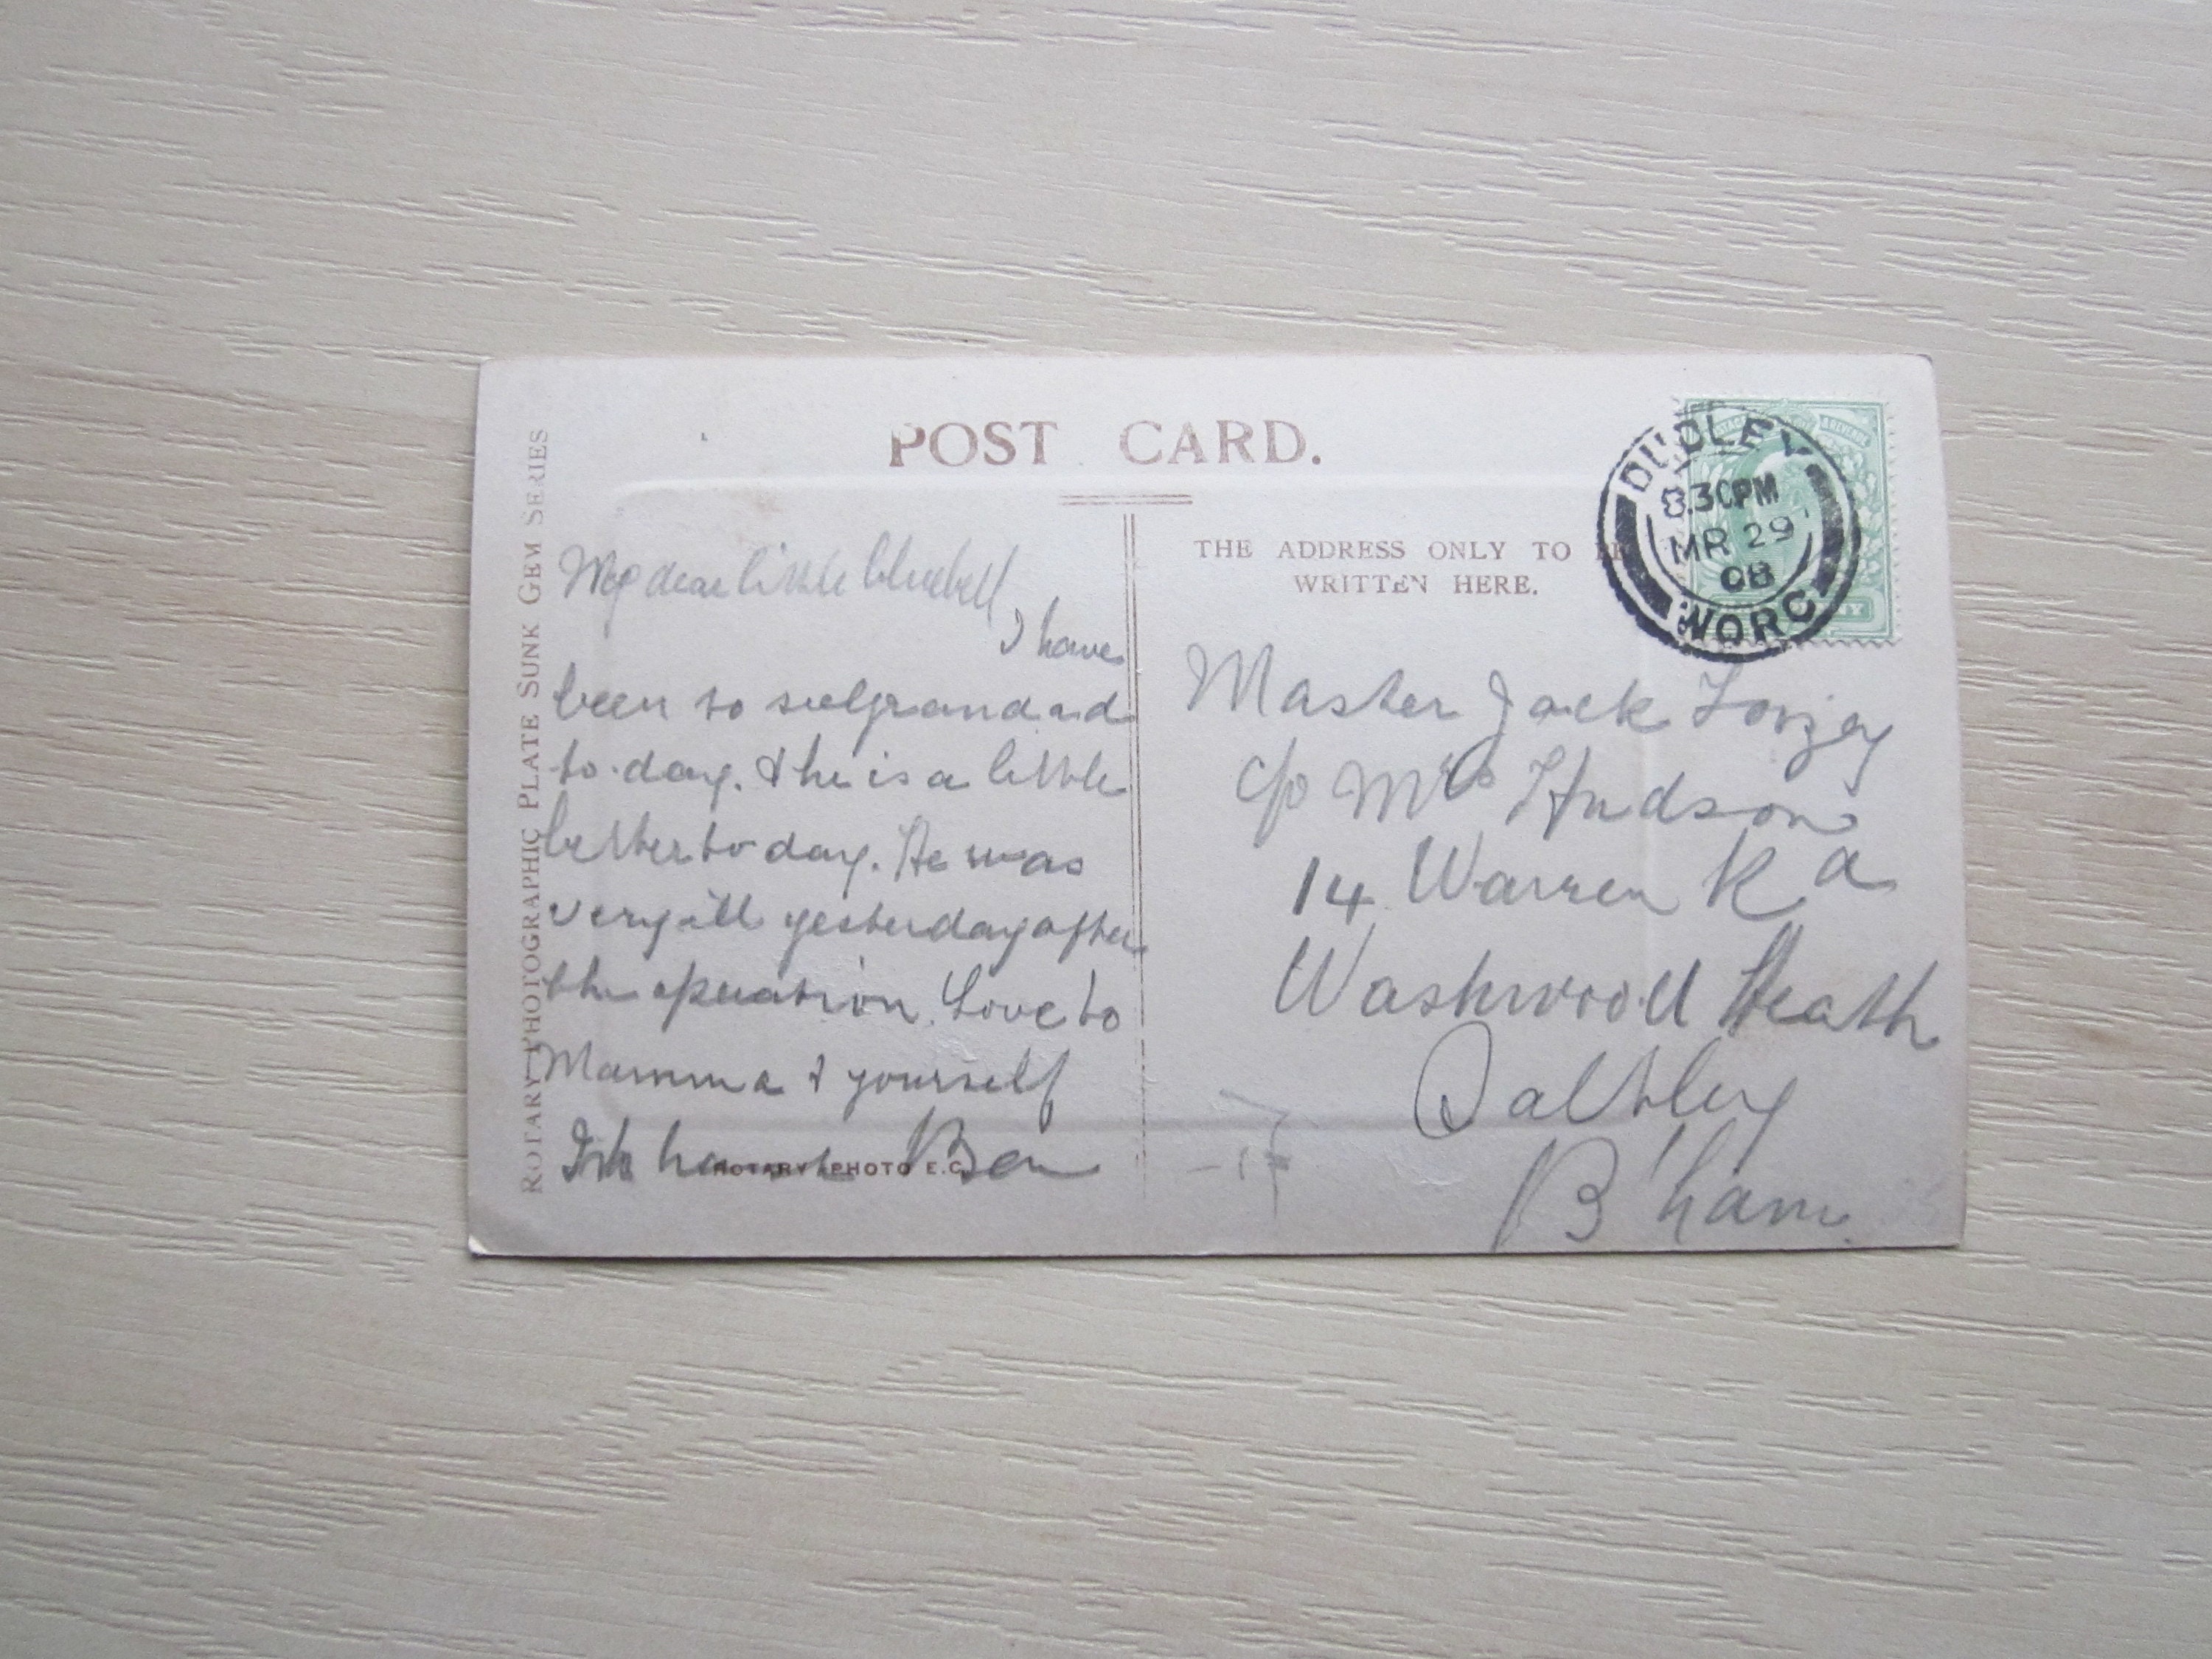 POST CARD.
ROTARY PHOTOGRAPHIC PLATE SUNK GEM SERIES
THE ADDRESS ONLY TO BE
WRITTEN HERE.
DUDLEY
8.30PM
MR 29
08
WORC
My dear little bluebell
I have
been to see grandad
to-day. & he is a little
better to day. He was
very ill yesterday after
the operation. Love to
Mamma & yourself
Ben
ROTARY PHOTO E.C.
Master Jack
c/o Mrs Hudson
14 Warren Rd
Washwood Heath
Saltley
B'ham